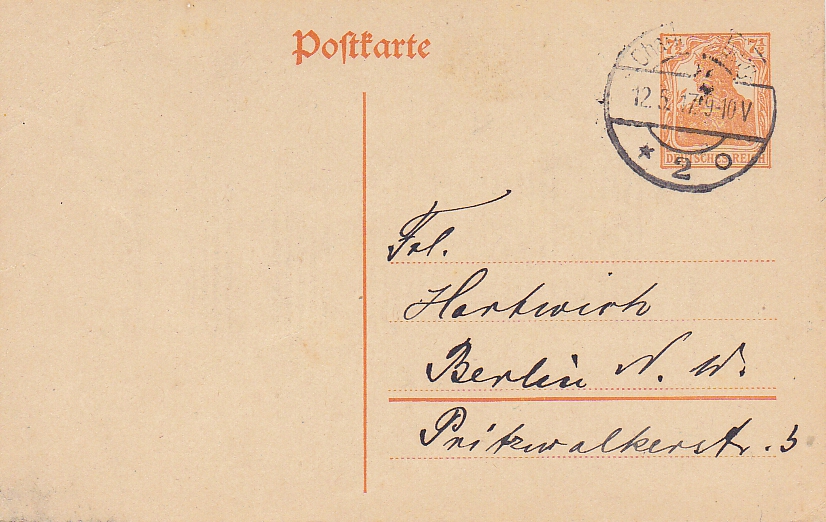 Postkarte
7½ 7½
12.5.17. 9-10 V
DEUTSCHES REICH
* 2 o
Frl.
Hartwich
Berlin N. W.
Pritzwalkerstr. 5